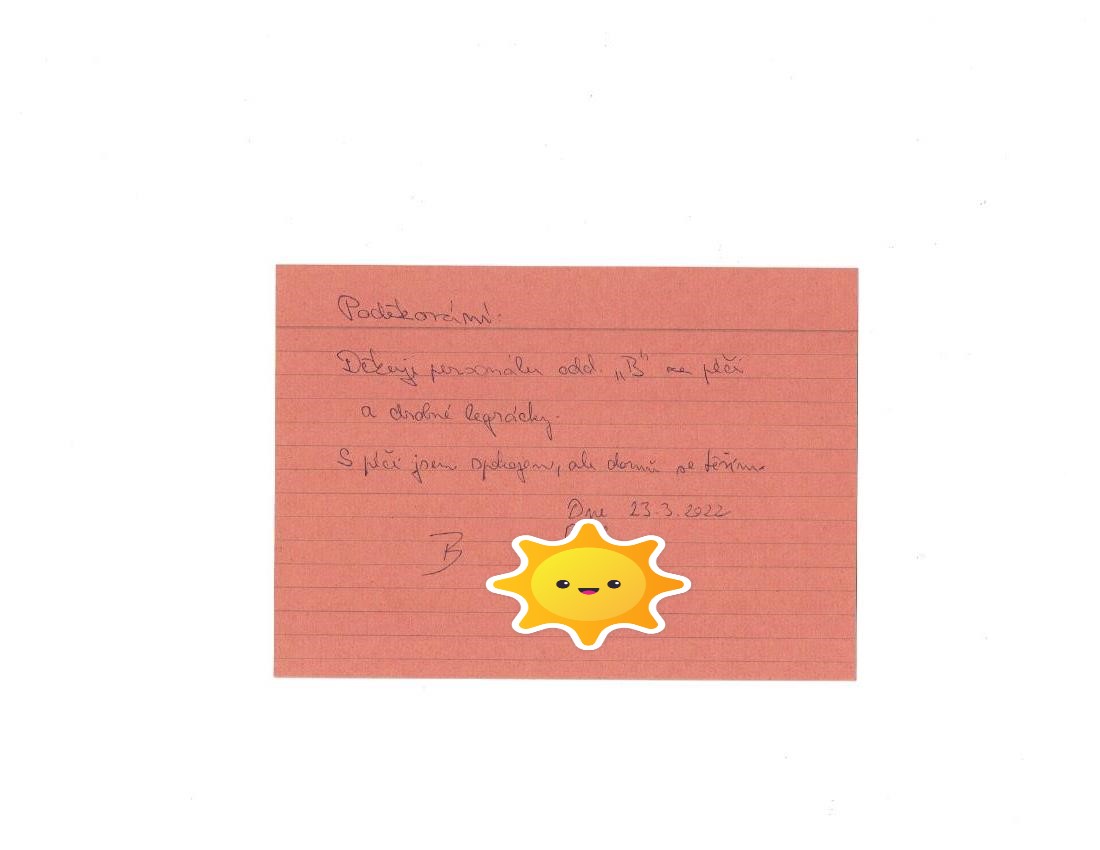 Poděkování:
Děkuji personálu odd. „B" za péči
a drobné legrácky.
S péčí jsem spokojen, ale domů se těším.
Dne 23.3.2022
B